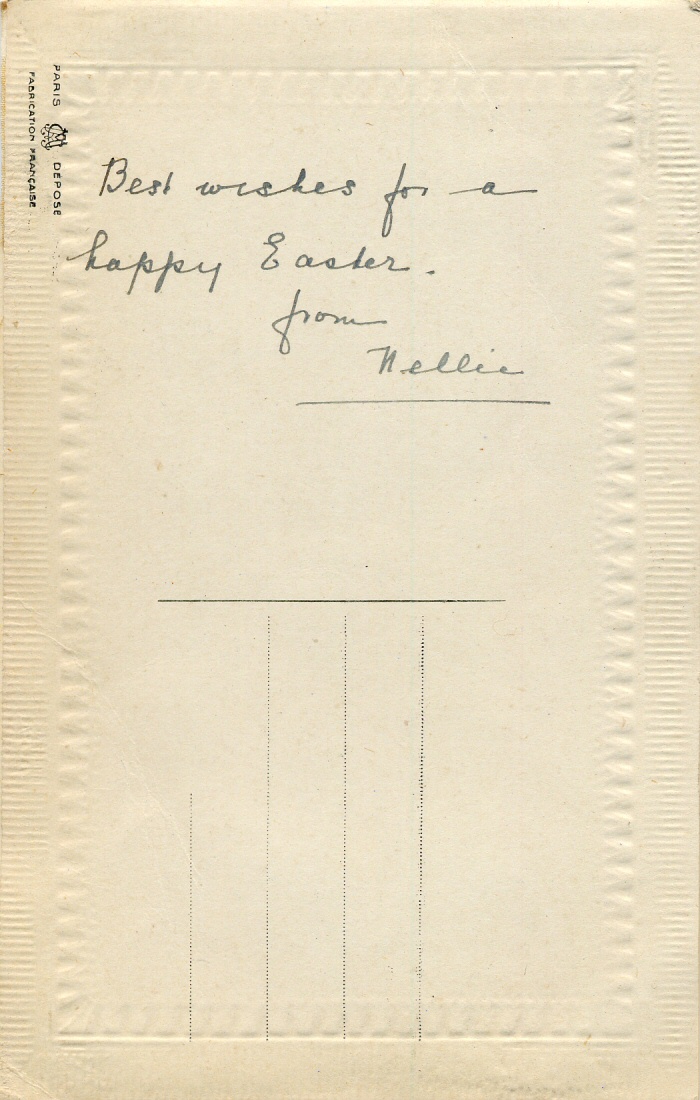 PARIS DEPOSE
FABRICATION FRANÇAISE
Best wishes for a
happy Easter.
from
Nellie